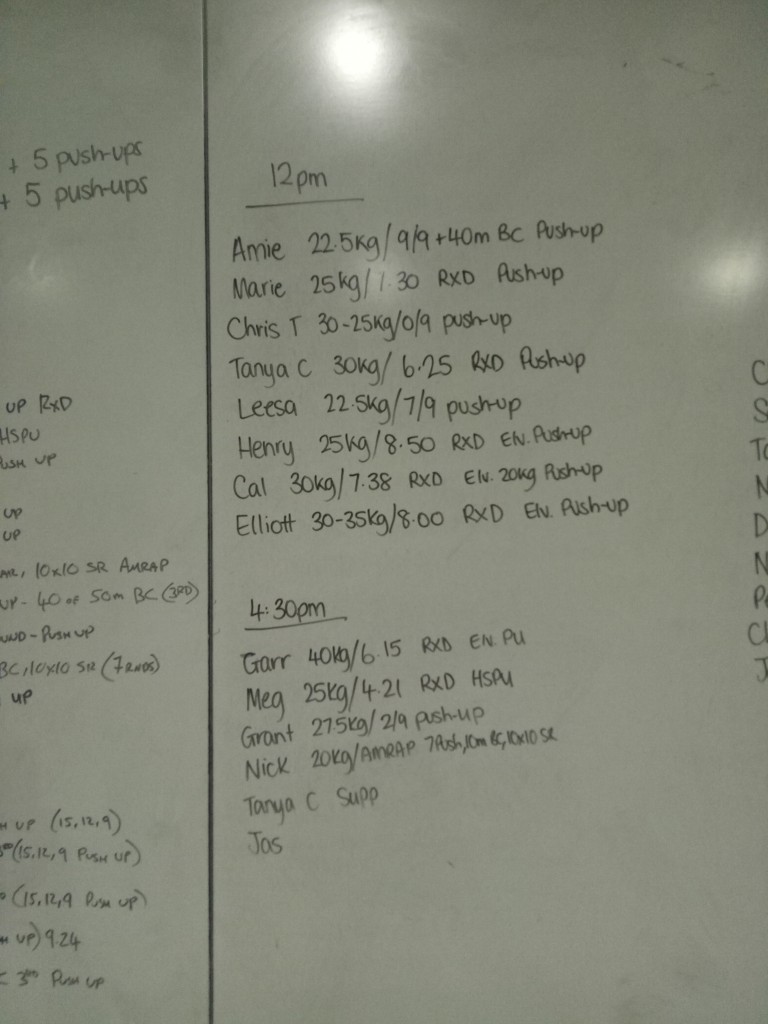 + 5 push-ups
+ 5 push-ups
UP RXD
HSPU
PUSH UP
UP
UP
10x10 SR AMRAP
UP - 40 of 50m BC (3RD)
- PUSH UP
BC, 10x10 SR (7 RNDS)
UP
UP (15,12,9)
(15,12,9 PUSH UP)
(15,12,9 PUSH UP)
UP) 9.24
3RD PUSH UP
12pm
Amie 22.5kg/9/9+40m BC Push-up
Marie 25kg/7.30 RXD Push-up
Chris T 30-25kg/0/9 push-up
Tanya C 30kg/ 6.25 RXD Push-up
Leesa 22.5kg/7/9 push-up
Henry 25kg/8.50 RXD Elv. Push-up
Cal 30kg/7.38 RXD Elv. 20kg Push-up
Elliott 30-35kg/8.00 RXD Elv. Push-up
4:30pm
Garr 40kg/6.15 RXD Elv. PU
Meg 25kg/4.21 RXD HSPU
Grant 27.5kg/2/9 push-up
Nick 20kg/AMRAP 7Push,10m BC,10x10 SR
Tanya C Supp
Jas